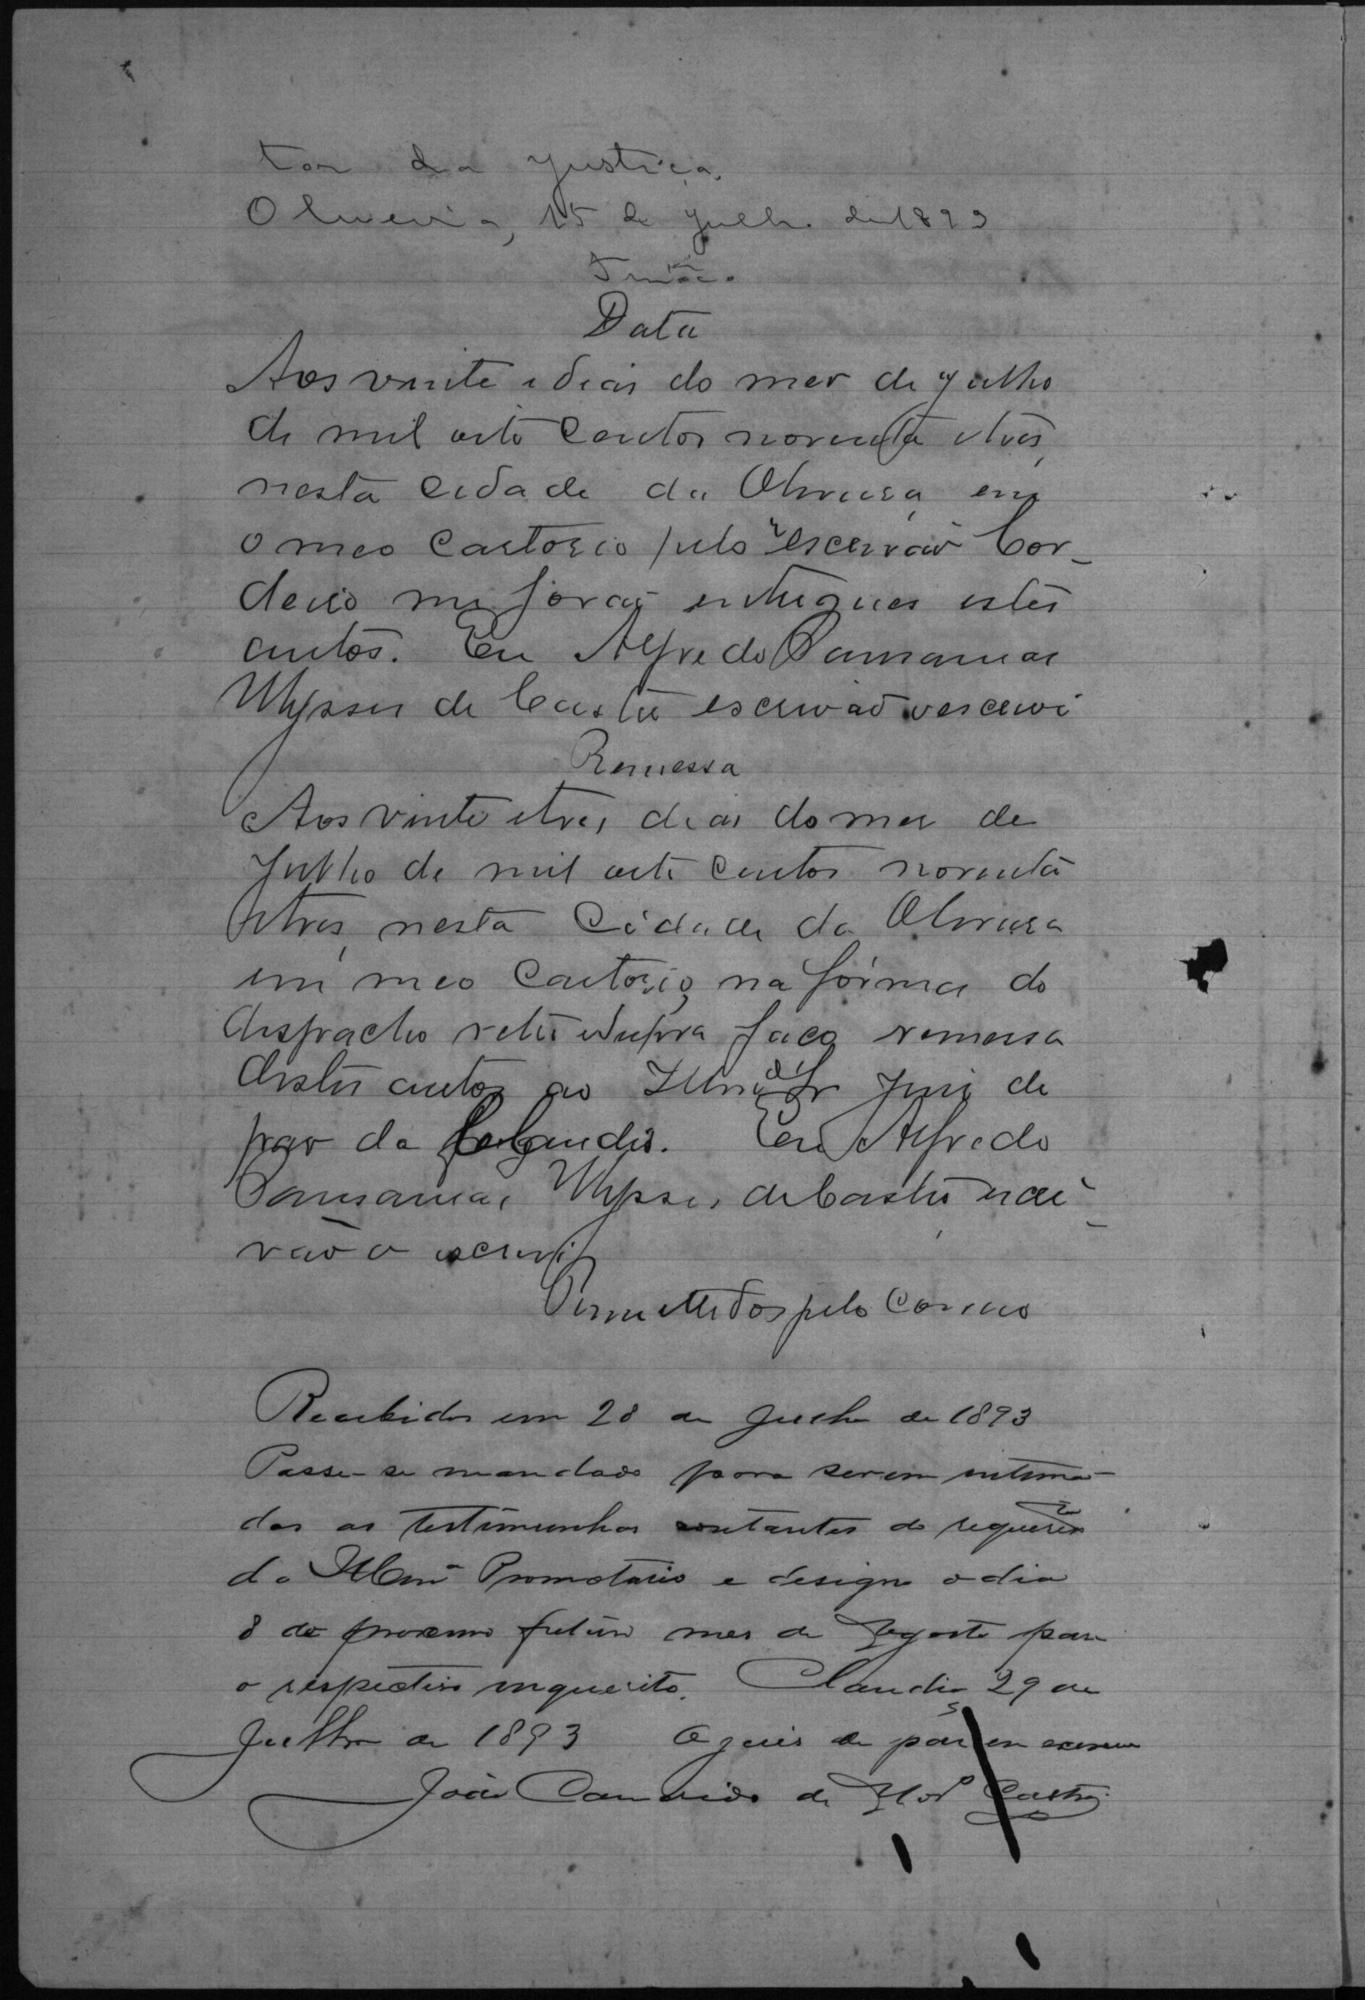 tor da Justiça.
Oliveira, 15 de Julho de 1893
Data
Aos vinte e dois do mez de Julho
de mil oito centos noventa e tres,
nesta cidade da Oliveira, em
o meo cartorio pelo escrivão Cor-
deiro me forão entregues estes
autos. Eu Alfredo Pausanias
Ulysses de Castro escrivão o escrevi
Remessa
Aos vinte e tres dias do mez de
Julho de mil oito centos noventa
e tres, nesta cidade da Oliveira
em meo cartorio, na fórma do
despacho retro e supra faço remessa
destes autos ao Illmo Sr Juiz de
paz da Claudio. Eu Alfredo
Pausanias Ulysses de Castro escri-
vão o escrevi
Remettidos pelo correio
Recebidos em 28 de Julho de 1893
Passe-se mandado para serem intima-
das as testimunhas constantes do requerito
do Illmo Promotorio e designo o dia
8 do proximo futuro mes de Agosto para
o respectivo inquerito. Claudio 29 de
Julho de 1893 O juis de pás em exercicio
João Candido de Castro